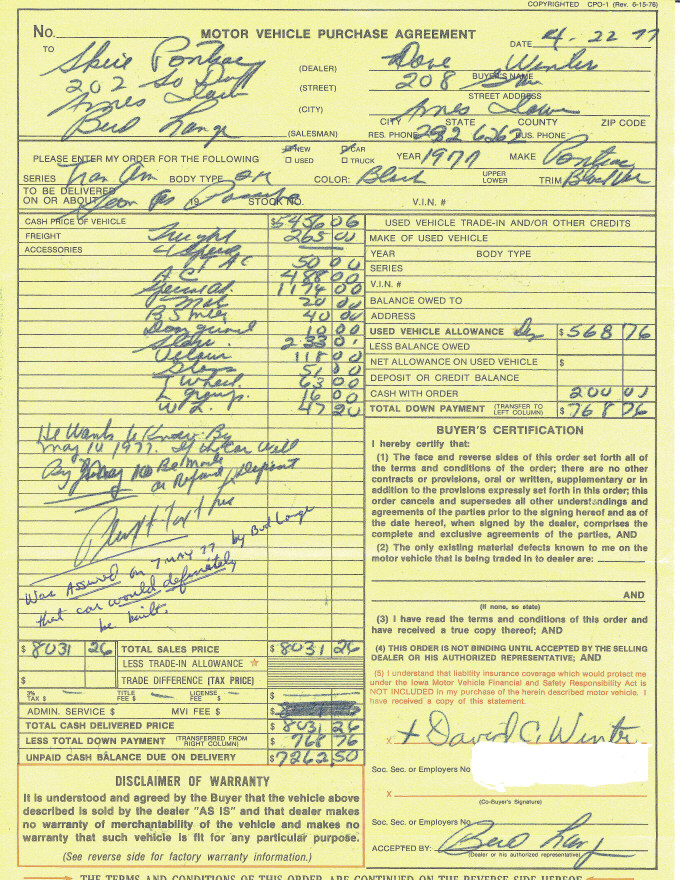 COPYRIGHTED CPO-1 (Rev. 6-15-76)
No. MOTOR VEHICLE PURCHASE AGREEMENT
DATE 4-22 77
TO
Pontiac (DEALER) Dave Winter
BUYER'S NAME
202 So (STREET) 208
STREET ADDRESS
Ames Iowa (CITY) Ames Iowa
CITY STATE COUNTY ZIP CODE
Bud Lange (SALESMAN) RES. PHONE 292 6262 BUS. PHONE
PLEASE ENTER MY ORDER FOR THE FOLLOWING NEW CAR USED TRUCK YEAR 1977 MAKE Pontiac
SERIES Tran Am BODY TYPE COLOR: Black UPPER LOWER TRIM Black
TO BE DELIVERED ON OR ABOUT Soon as Possible 19 STOCK NO. V.I.N. #
CASH PRICE OF VEHICLE $ 5456 06
FREIGHT Freight 265 00
ACCESSORIES 4 Speed
50 00
A C 488 00
Special 1174 00
Mats 20 00
40 00
Door guard 10 00
233 01
Velour 118 00
51 00
T Wheel 63 00
L group. 16 00
W L. 47 20
He Wants to Know By
May 10 1977. If the Car Will
Be Made
or Refund Deposit
Was Assured on 7 MAY 77 by Bud Lange
that car would definitely
be built.
USED VEHICLE TRADE-IN AND/OR OTHER CREDITS
MAKE OF USED VEHICLE
YEAR BODY TYPE
SERIES
V.I.N. #
BALANCE OWED TO
ADDRESS
USED VEHICLE ALLOWANCE $ 568 76
LESS BALANCE OWED
NET ALLOWANCE ON USED VEHICLE $
DEPOSIT OR CREDIT BALANCE
CASH WITH ORDER 200 00
TOTAL DOWN PAYMENT (TRANSFER TO LEFT COLUMN) $ 768 76
BUYER'S CERTIFICATION
I hereby certify that:
(1) The face and reverse sides of this order set forth all of
the terms and conditions of the order; there are no other
contracts or provisions, oral or written, supplementary or in
addition to the provisions expressly set forth in this order; this
order cancels and supersedes all other understandings and
agreements of the parties prior to the signing hereof and as of
the date hereof, when signed by the dealer, comprises the
complete and exclusive agreements of the parties, AND
(2) The only existing material defects known to me on the
motor vehicle that is being traded in to dealer are:
AND
(If none, so state)
(3) I have read the terms and conditions of this order and
have received a true copy thereof; AND
(4) THIS ORDER IS NOT BINDING UNTIL ACCEPTED BY THE SELLING
DEALER OR HIS AUTHORIZED REPRESENTATIVE; AND
(5) I understand that liability insurance coverage which would protect me
under the Iowa Motor Vehicle Financial and Safety Responsibility Act is
NOT INCLUDED in my purchase of the herein described motor vehicle. I
have received a copy of this statement.
x + David C. Winter
Soc. Sec. or Employers No
X
(Co-Buyer's Signature)
Soc. Sec. or Employers No
ACCEPTED BY: Bud Lange
(Dealer or his authorized representative)
$ 8031 26 TOTAL SALES PRICE $ 8031 26
LESS TRADE-IN ALLOWANCE ☆
$ TRADE DIFFERENCE (TAX PRICE)
3% TAX $ TITLE FEE $ LICENSE FEE $ $
ADMIN. SERVICE $ MVI FEE $ $
TOTAL CASH DELIVERED PRICE $ 8031 26
LESS TOTAL DOWN PAYMENT (TRANSFERRED FROM RIGHT COLUMN) $ 768 76
UNPAID CASH BALANCE DUE ON DELIVERY $ 7262 50
DISCLAIMER OF WARRANTY
It is understood and agreed by the Buyer that the vehicle above
described is sold by the dealer "AS IS" and that dealer makes
no warranty of merchantability of the vehicle and makes no
warranty that such vehicle is fit for any particular purpose.
(See reverse side for factory warranty information.)
THE TERMS AND CONDITIONS OF THIS ORDER ARE CONTINUED ON THE REVERSE SIDE HEREOF